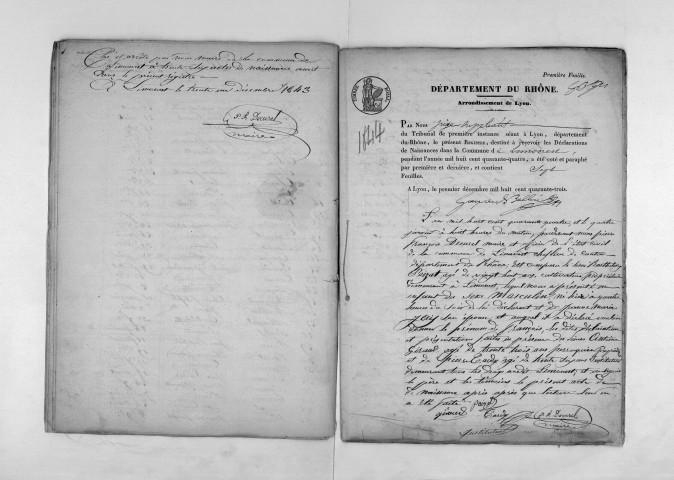 Clos et arrêté par nous maire de la commune de
Limonest à trente six actes de naissance inscrit
dans le présent registre
Limonest le trente un décembre 1843
P. F. Decurel
maire
Première Feuille.
DÉPARTEMENT DU RHÔNE.
Arrondissement de Lyon.
1844
PAR NOUS juge suppléant
du Tribunal de première instance séant à Lyon, département
du Rhône, le présent REGISTRE, destiné à recevoir les Déclarations
de Naissances dans la Commune d e Limonest
pendant l'année mil huit cent quarante-quatre, a été coté et paraphé
par première et dernière, et contient Sept
Feuilles.
A Lyon, le premier décembre mil huit cent quarante-trois.
L'an mil huit cent quarante quatre, et le quatre
janvier à huit heures du matin, pardevant nous pierre
françois Decurel maire et officier de l'état civil
de la commune de Limonest chef lieu de canton
département du Rhône, est comparu le sieur
agé de vingt huit ans, cultivateur propriétaire
demeurant à Limonest, lequel nous a présenté un
enfant du Sexe Masculin, né hier à quatre
heures du soir de lui déclarant et de
son épouse, et auquel il a déclaré vouloir
donner le prénom de françois, les dites déclaration
et présentation faites en présence des sieurs Antoine
Giraud agé de trente trois ans perruquier
et de agé de trente ans Instituteur
demeurant tous les deux audit Limonest, et ont signé
le père et les témoins le présent acte de
de naissance après après que lecture leur en
a été faite
giraud
P. F. Decurel
Instituteur
maire